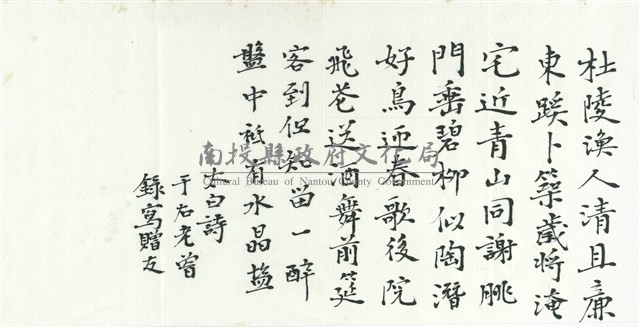 杜陵漁人清且廉
東蹊卜築歲將淹
宅近青山同謝朓
門垂碧柳似陶潛
好鳥迎春歌後院
飛花送酒舞前筵
客到但知留一醉
盤中祗有水晶鹽
太白詩
于右老曾
錄寫贈友
南投縣政府文化局
Cultural Bureau of Nantou County Government